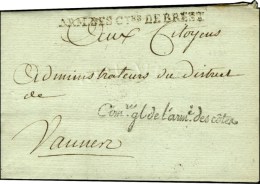 ARM. DES CTES DE BREST
Aux Citoyens
Administrateurs du district
de
Com.re gl de l'arm.e des côtes
Vannes